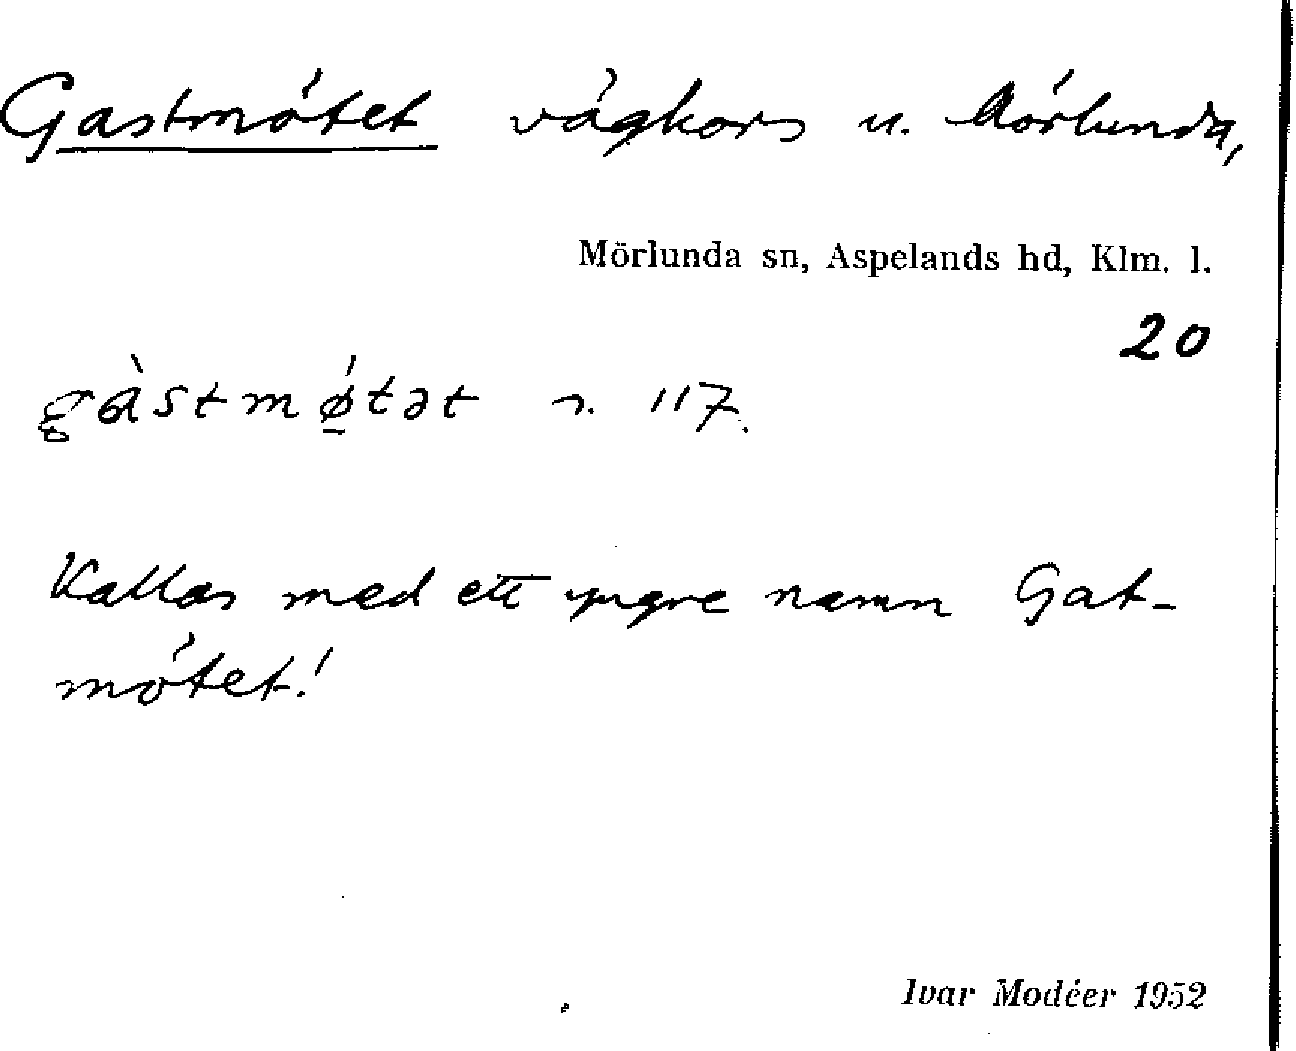 Gastmötet vägkors u. Mörlunda,
Mörlunda sn, Aspelands hd, Klm. l.
20
gàstmǿ̲tət n. 117.
Kallas med ett yngre namn Gat-
mötet!
Ivar Modéer 1952